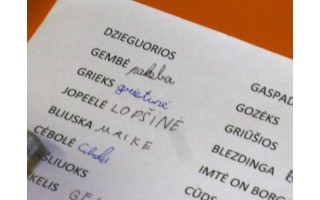 DZIEGUORIOS
GEMBĖ pakaba
GRIEKS grietinė
JOPEELĖ LOPŠINĖ
BLIUSKA MAIKE
CĖBOLĖ
ŠLIUOKS
KELIS
GASPAD
GOZĖKS
GRIŪŠIOS
BLEZDINGA
IMTĖ ON BORG
CŪDS